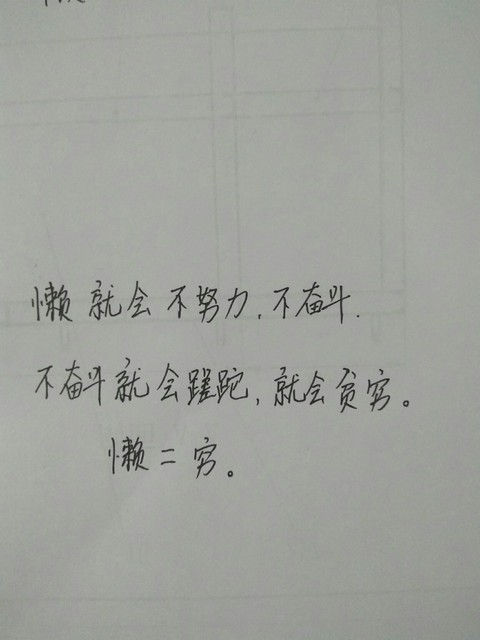 懒就会不努力,不奋斗.
不奋斗就会蹉跎,就会贫穷。
懒=穷。